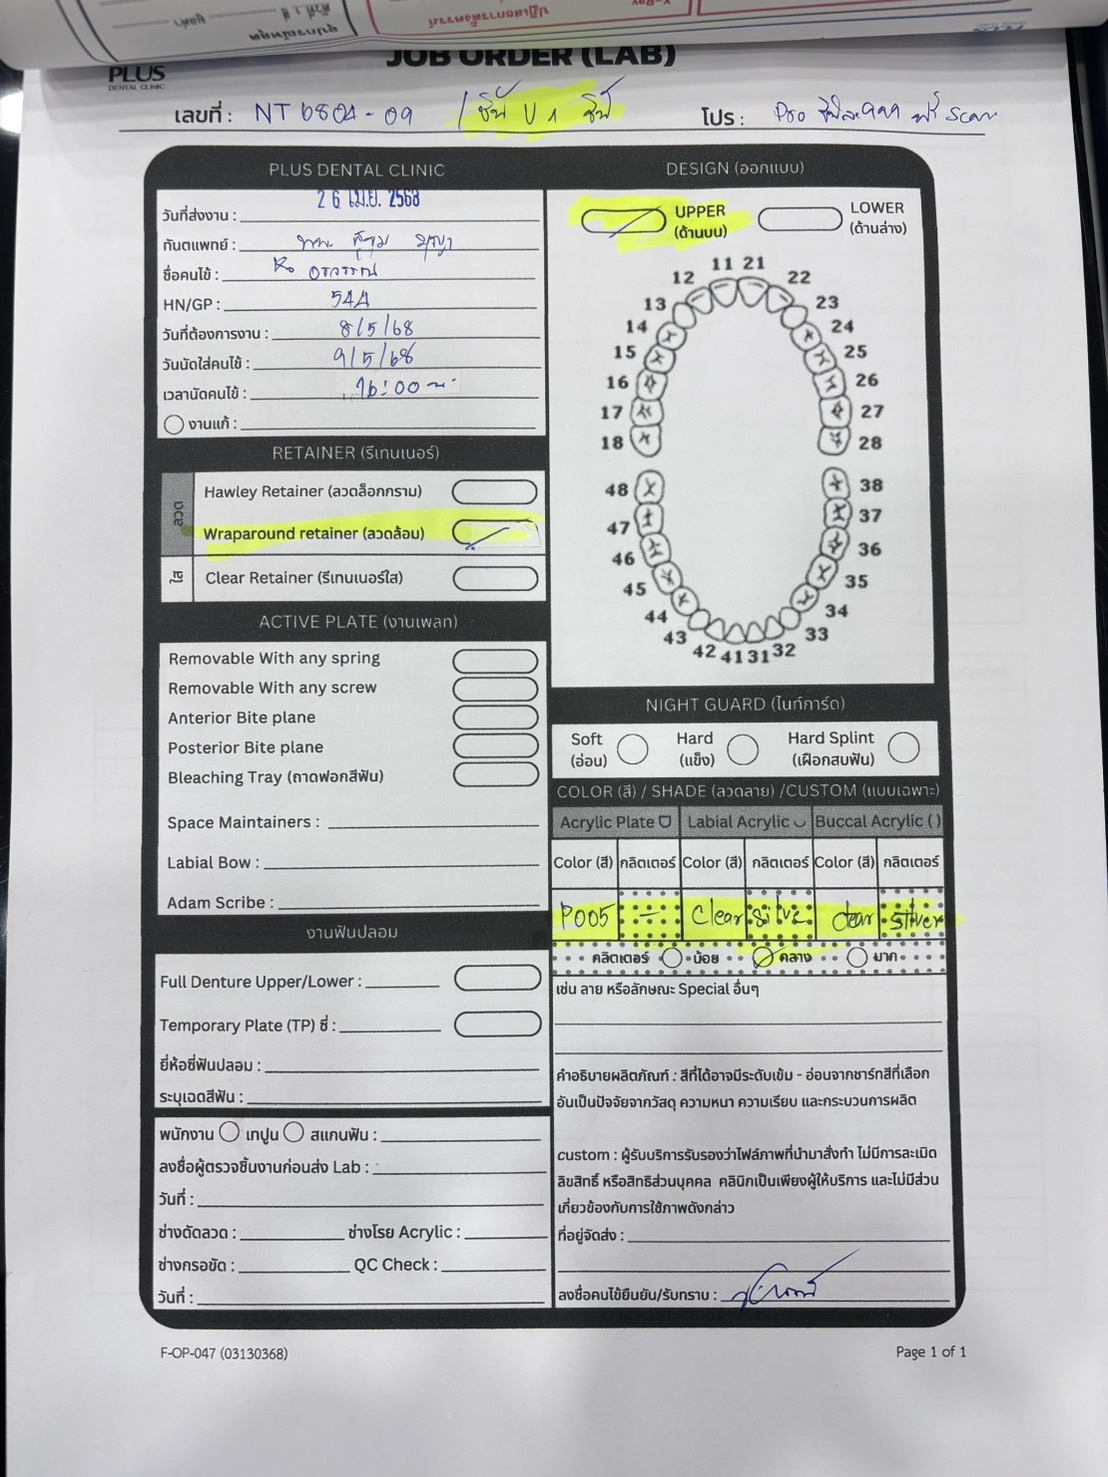 JOB ORDER (LAB)
PLUS
DENTAL CLINIC
เลขที่ : NT 6804-09 / ชิ้น U 1 ชิ้น
โปร : Pro ฟรี Scan
PLUS DENTAL CLINIC
วันที่ส่งงาน : 26 เม.ย. 2568
ทันตแพทย์ :
ชื่อคนไข้ :
HN/GP : 544
วันที่ต้องการงาน : 8/5/68
วันนัดใส่คนไข้ : 9/5/68
เวลานัดคนไข้ : 16:00 น.
งานแก้ :
RETAINER (รีเทนเนอร์)
ลวด
Hawley Retainer (ลวดล็อกกราม)
Wraparound retainer (ลวดล้อม)
ใส
Clear Retainer (รีเทนเนอร์ใส)
ACTIVE PLATE (งานเพลท)
Removable With any spring
Removable With any screw
Anterior Bite plane
Posterior Bite plane
Bleaching Tray (ถาดฟอกสีฟัน)
Space Maintainers :
Labial Bow :
Adam Scribe :
งานฟันปลอม
Full Denture Upper/Lower :
Temporary Plate (TP) ซี่ :
ยี่ห้อซี่ฟันปลอม :
ระบุเฉดสีฟัน :
พนักงาน เทปูน สแกนฟัน :
ลงชื่อผู้ตรวจชิ้นงานก่อนส่ง Lab :
วันที่ :
ช่างดัดลวด : ช่างโรย Acrylic :
ช่างกรอขัด : QC Check :
วันที่ :
DESIGN (ออกแบบ)
UPPER
(ด้านบน)
LOWER
(ด้านล่าง)
11 21
12 22
13 23
14 24
15 25
16 26
17 27
18 28
48 38
47 37
46 36
45 35
44 34
43 33
42 41 31 32
NIGHT GUARD (ไนท์การ์ด)
Soft
(อ่อน)
Hard
(แข็ง)
Hard Splint
(เฝือกสบฟัน)
COLOR (สี) / SHADE (ลวดลาย) /CUSTOM (แบบเฉพาะ)
Acrylic Plate Labial Acrylic Buccal Acrylic ( )
Color (สี) กลิตเตอร์ Color (สี) กลิตเตอร์ Color (สี) กลิตเตอร์
P005 - clear silver clear silver
กลิตเตอร์ น้อย กลาง มาก
เช่น ลาย หรือลักษณะ Special อื่นๆ
คำอธิบายผลิตภัณฑ์ : สีที่ได้อาจมีระดับเข้ม - อ่อนจากชาร์ทสีที่เลือก
อันเป็นปัจจัยจากวัสดุ ความหนา ความเรียบ และกระบวนการผลิต
custom : ผู้รับบริการรับรองว่าไฟล์ภาพที่นำมาสั่งทำ ไม่มีการละเมิด
ลิขสิทธิ์ หรือสิทธิส่วนบุคคล คลินิกเป็นเพียงผู้ให้บริการ และไม่มีส่วน
เกี่ยวข้องกับการใช้ภาพดังกล่าว
ที่อยู่จัดส่ง :
ลงชื่อคนไข้ยืนยัน/รับทราบ :
F-OP-047 (03130368)
Page 1 of 1